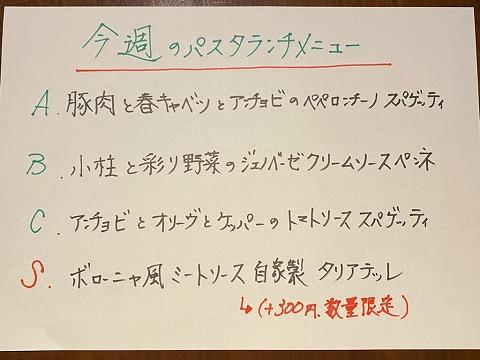 今週のパスタランチメニュー
A. 豚肉と春キャベツとアンチョビのペペロンチーノ スパゲッティ
B. 小柱と彩り野菜のジェノバーゼクリームソースペンネ
C. アンチョビとオリーヴとケッパーのトマトソース スパゲッティ
S. ボローニャ風ミートソース 自家製 タリアテッレ
↳(+300円、数量限定)